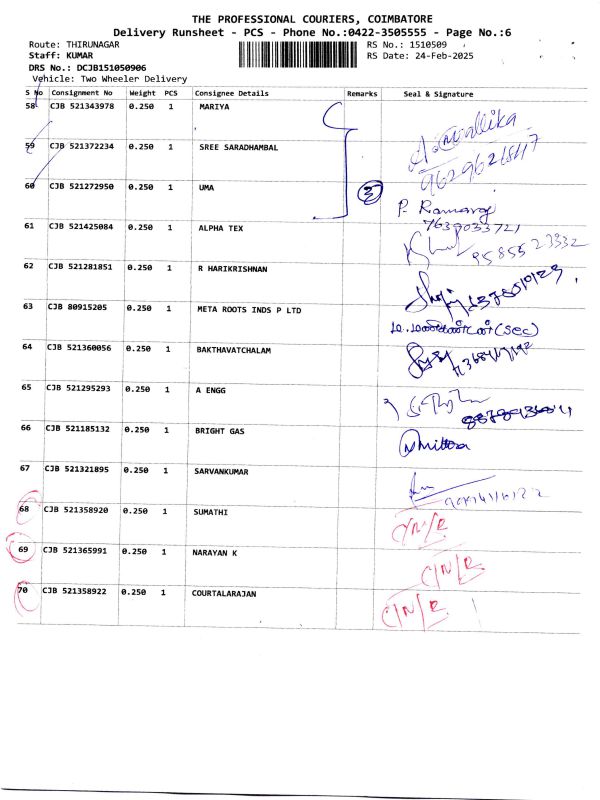 THE PROFESSIONAL COURIERS, COIMBATORE
Delivery Runsheet - PCS - Phone No.:0422-3505555 - Page No.:6
Route: THIRUNAGAR RS No.: 1510509
Staff: KUMAR RS Date: 24-Feb-2025
DRS No.: DCJB151050906
Vehicle: Two Wheeler Delivery
S No Consignment No Weight PCS Consignee Details Remarks Seal & Signature
58 CJB 521343978 0.250 1 MARIYA
59 CJB 521372234 0.250 1 SREE SARADHAMBAL
60 CJB 521272950 0.250 1 UMA
3
P. Ramaraj
7639033721
61 CJB 521425084 0.250 1 ALPHA TEX
9585523332
62 CJB 521281851 0.250 1 R HARIKRISHNAN
63 CJB 80915205 0.250 1 META ROOTS INDS P LTD
(Sec)
64 CJB 521360056 0.250 1 BAKTHAVATCHALAM
65 CJB 521295293 0.250 1 A ENGG
66 CJB 521185132 0.250 1 BRIGHT GAS
67 CJB 521321895 0.250 1 SARVANKUMAR
68 CJB 521358920 0.250 1 SUMATHI
69 CJB 521365991 0.250 1 NARAYAN K C/N/R
70 CJB 521358922 0.250 1 COURTALARAJAN C/N/R